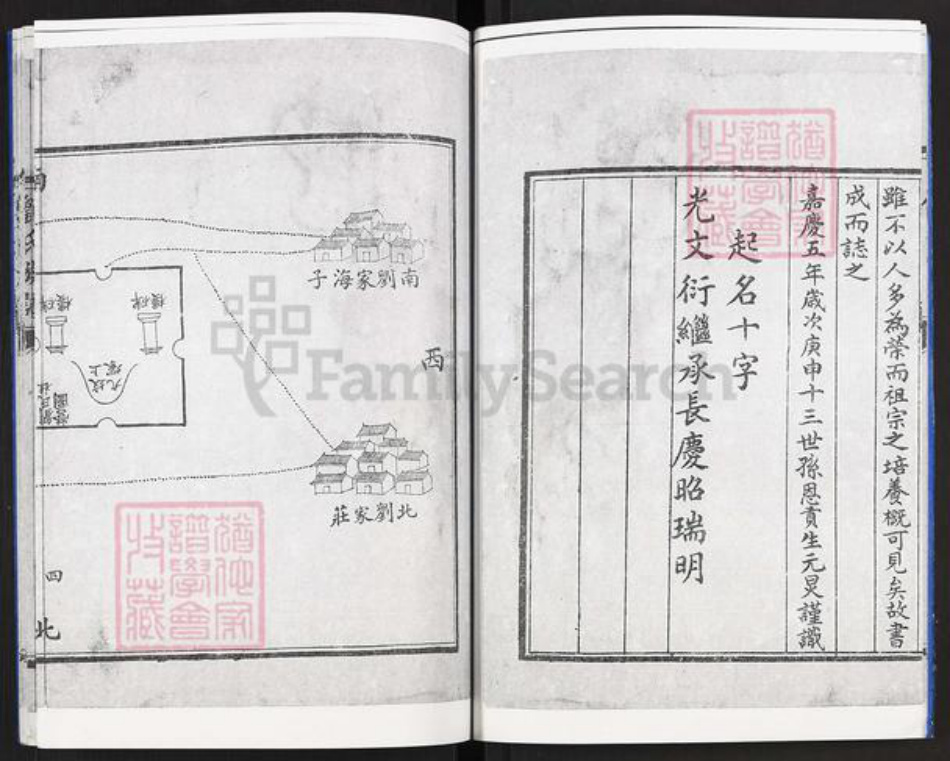 雖不以人多為榮而祖宗之培養概可見矣故書
成而誌之
嘉慶五年歲次庚申十三世孫恩貢生元炅謹識
起名十字
光文衍繼承長慶昭瑞明
猶他家
譜學會
收藏
南劉家海子
西
碑樓
碑樓
上壙
九故
北劉家莊
四
北
猶他家
譜學會
收藏
FamilySearch